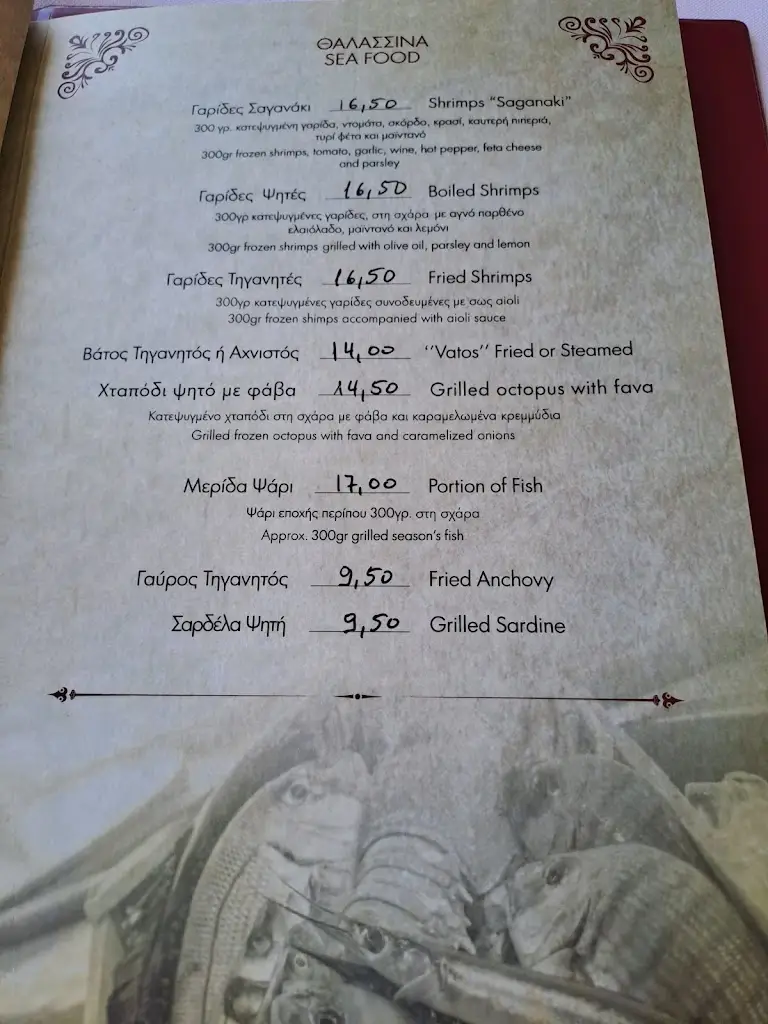 ΘΑΛΑΣΣΙΝΑ
SEA FOOD
Γαρίδες Σαγανάκι 16,50 Shrimps "Saganaki"
300 γρ. κατεψυγμένη γαρίδα, ντομάτα, σκόρδο, κρασί, καυτερή πιπεριά,
τυρί φέτα και μαϊντανό
300gr frozen shrimps, tomato, garlic, wine, hot pepper, feta cheese
and parsley
Γαρίδες Ψητές 16,50 Boiled Shrimps
300γρ κατεψυγμένες γαρίδες, στη σχάρα με αγνό παρθένο
ελαιόλαδο, μαϊντανό και λεμόνι
300gr frozen shrimps grilled with olive oil, parsley and lemon
Γαρίδες Τηγανητές 16,50 Fried Shrimps
300γρ κατεψυγμένες γαρίδες συνοδευμένες με σως aioli
300gr frozen shimps accompanied with aioli sauce
Βάτος Τηγανητός ή Αχνιστός 14,00 ''Vatos'' Fried or Steamed
Χταπόδι ψητό με φάβα 14,50 Grilled octopus with fava
Κατεψυγμένο χταπόδι στη σχάρα με φάβα και καραμελωμένα κρεμμύδια
Grilled frozen octopus with fava and caramelized onions
Μερίδα Ψάρι 17,00 Portion of Fish
Ψάρι εποχής περίπου 300γρ. στη σχάρα
Approx. 300gr grilled season's fish
Γαύρος Τηγανητός 9,50 Fried Anchovy
Σαρδέλα Ψητή 9,50 Grilled Sardine